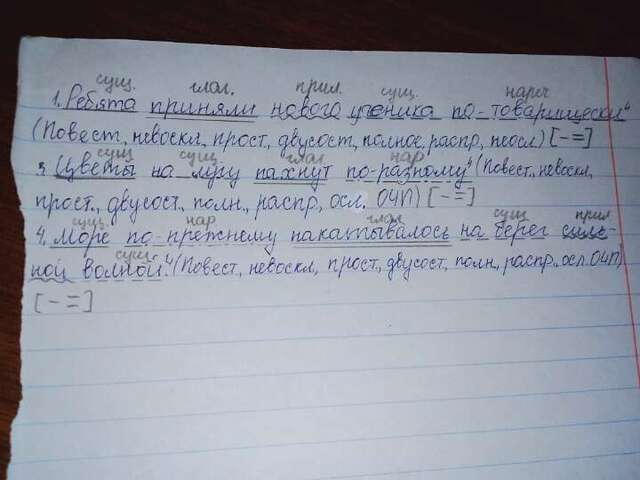 сущ. глаг. прил. сущ. нареч
1. Ребята приняли нового ученика по-товарищески⁴
(Повест, невоскл, прост, двусост, полное, распр, неосл.) [-=]
сущ сущ. глаг нар
3. Цветы на лугу пахнут по-разному⁴ (Повест., невоскл,
прост., двусост., полн., распр, осл. ОЧП) [-=]
сущ. нар глаг сущ прил
4. Море по-прежнему накатывалось на берег силь-
сущ.
ной волной.⁴ (Повест, невоскл, прост, двусост, полн, распр., осл. ОЧП)
[-=]